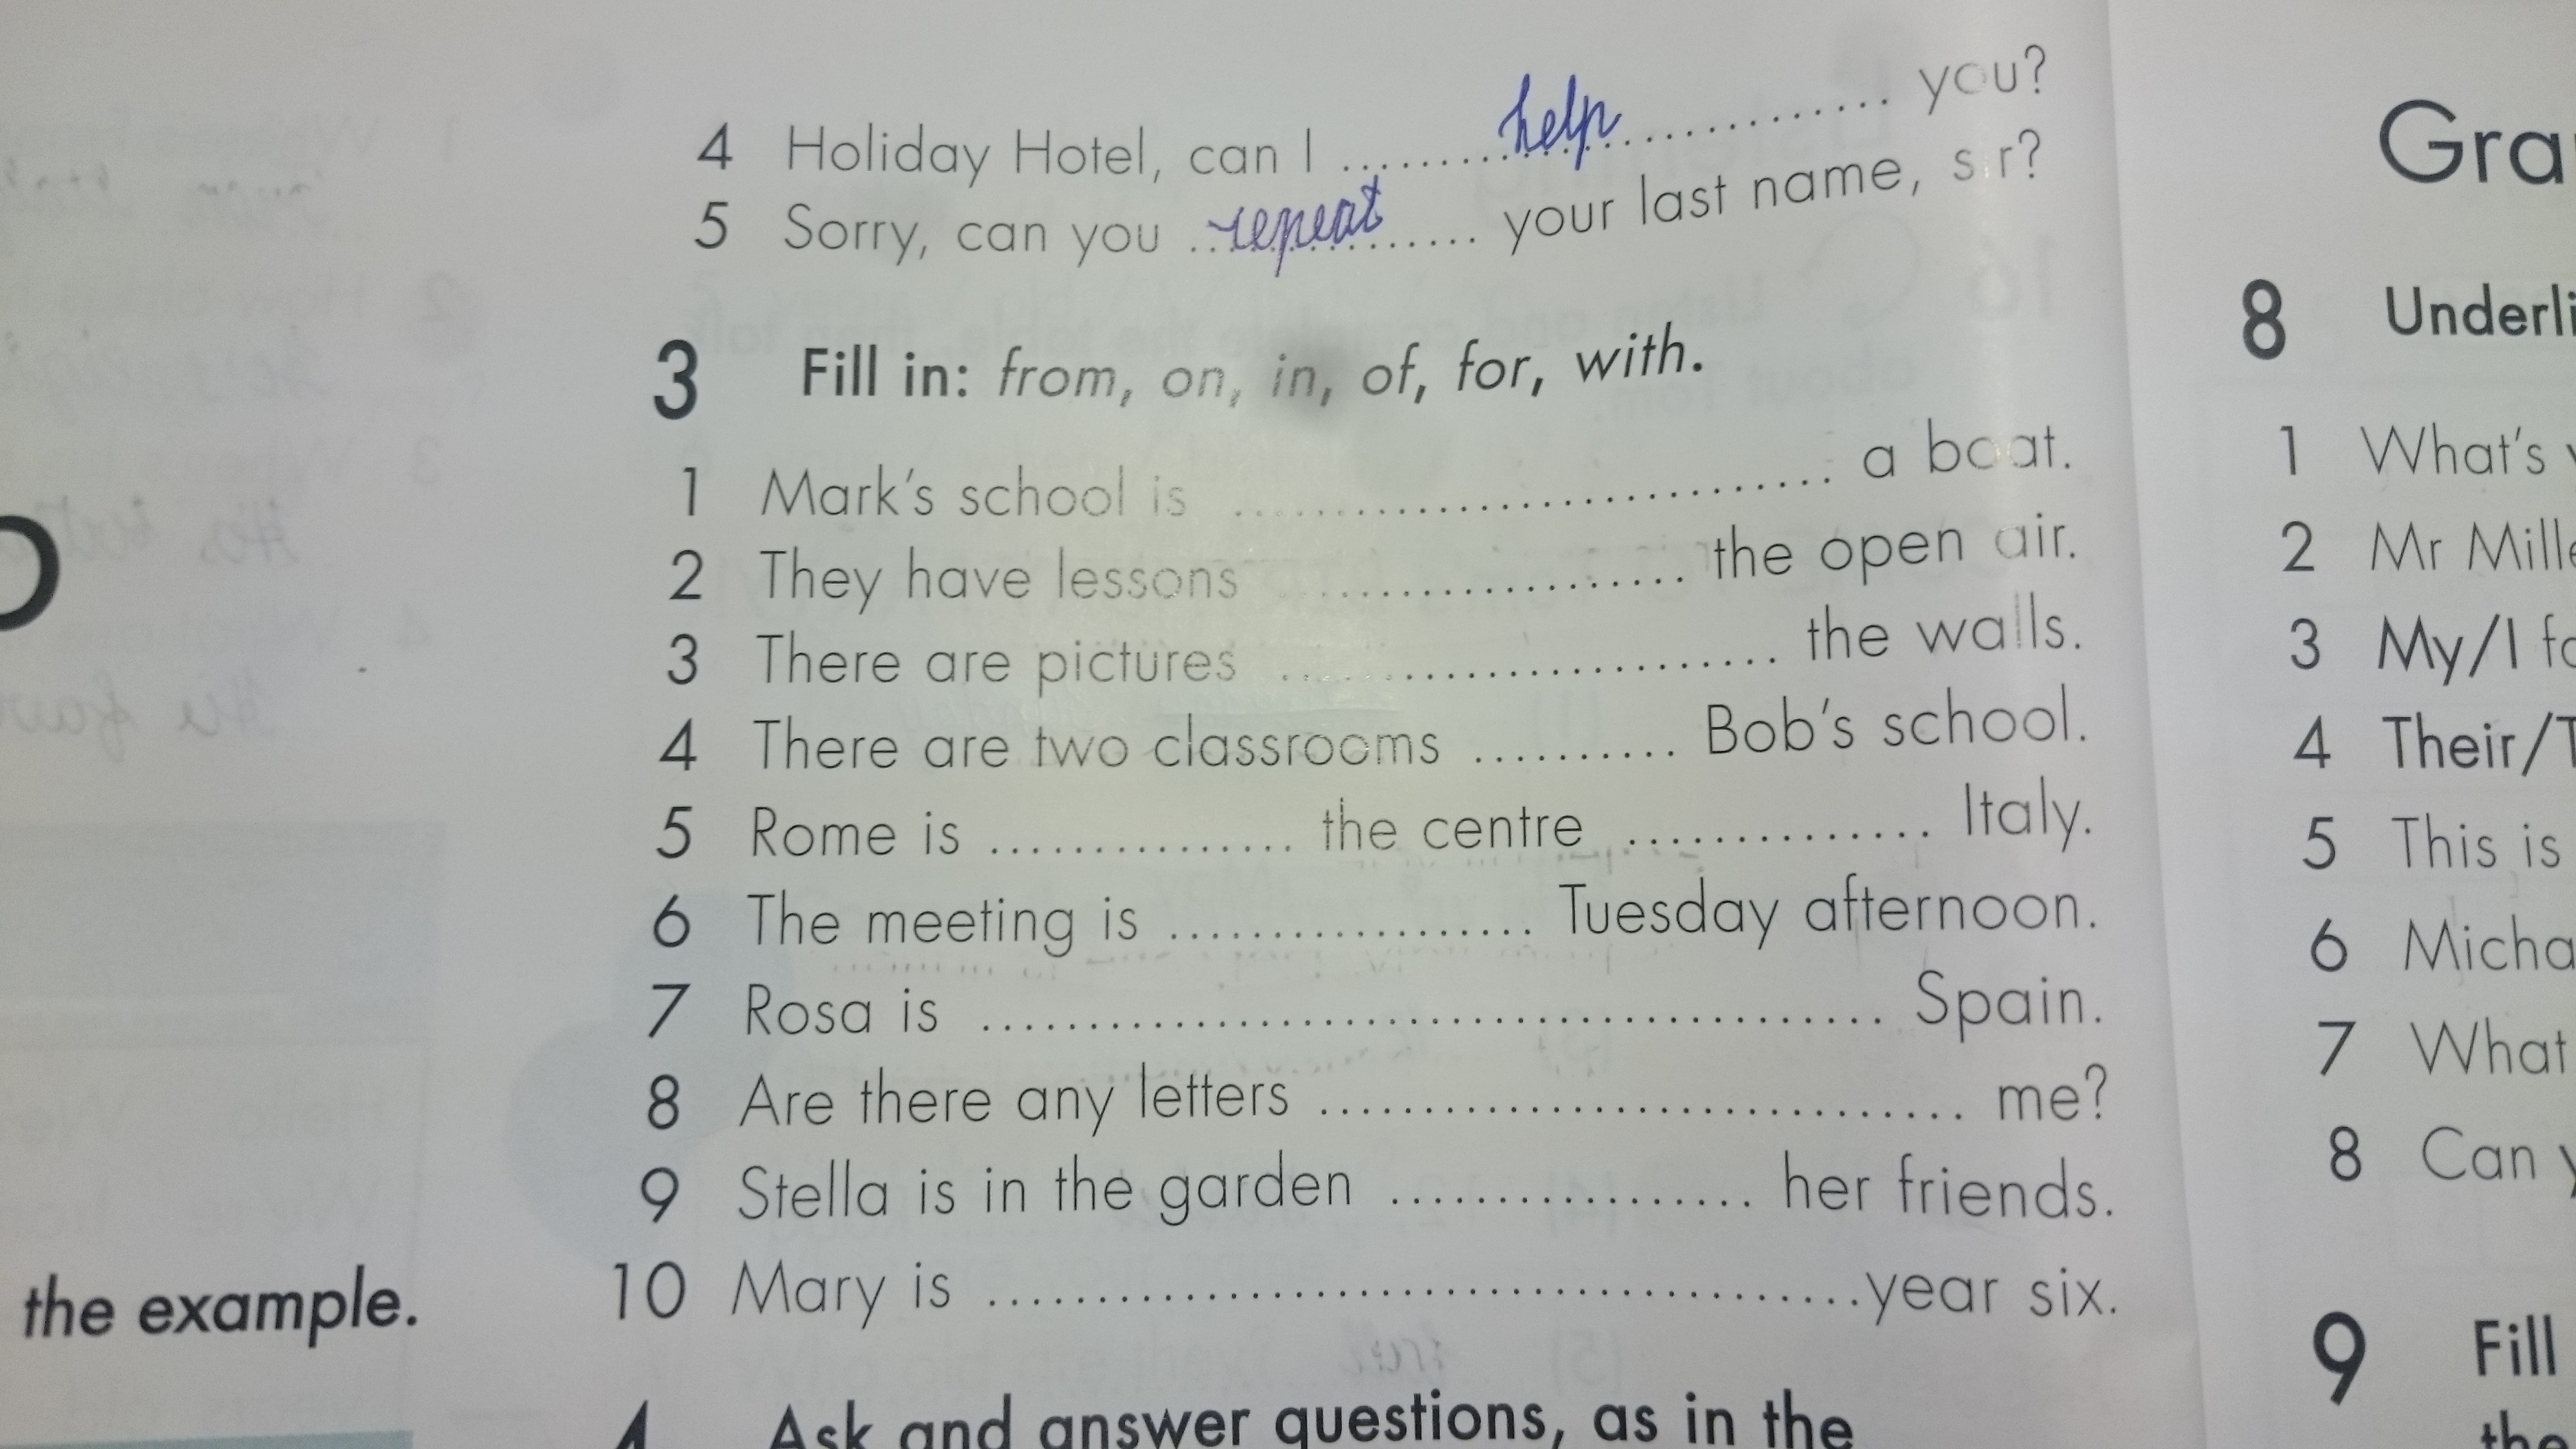 4 Holiday Hotel, can I ........help............ you?
5 Sorry, can you ..repeat....... your last name, sir?
3 Fill in: from, on, in, of, for, with.
1 Mark's school is .............................. a boat.
2 They have lessons .................... the open air.
3 There are pictures ........................ the walls.
4 There are two classrooms .......... Bob's school.
5 Rome is ............... the centre ............... Italy.
6 The meeting is .................. Tuesday afternoon.
7 Rosa is ............................................ Spain.
8 Are there any letters ................................ me?
9 Stella is in the garden .................. her friends.
10 Mary is ..........................................year six.
4 Ask and answer questions, as in the
the example.
Gra
8 Underli
1 What's
2 Mr Mill
3 My/I
4 Their/T
5 This is
6 Micha
7 What
8 Can
9 Fill
the